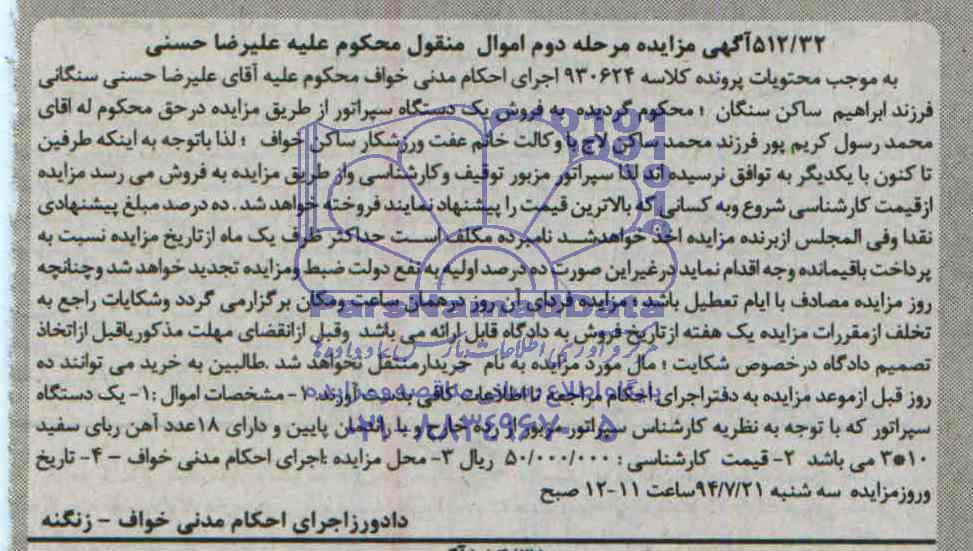 ۵۱۲/۳۲آگهی مزایده مرحله دوم اموال منقول محکوم علیه علیرضا حسنی
به موجب محتویات پرونده کلاسه ۹۳۰۶۲۴ اجرای احکام مدنی خواف محکوم علیه آقای علیرضا حسنی سنگانی
فرزند ابراهیم ساکن سنگان ؛ محکوم گردیده به فروش یک دستگاه سپراتور از طریق مزایده درحق محکوم له اقای
محمد رسول کریم پور فرزند محمد ساکن لاج با وکالت خانم عفت ورزشکار ساکن خواف ؛ لذا باتوجه به اینکه طرفین
تا کنون با یکدیگر به توافق نرسیده اند لذا سپراتور مزبور توقیف وکارشناسی واز طریق مزایده به فروش می رسد مزایده
ازقیمت کارشناسی شروع وبه کسانی که بالاترین قیمت را پیشنهاد نمایند فروخته خواهد شد . ده درصد مبلغ پیشنهادی
نقدا وفی المجلس ازبرنده مزایده اخذ خواهدشد نامبرده مکلف است حداکثر ظرف یک ماه ازتاریخ مزایده نسبت به
پرداخت باقیمانده وجه اقدام نماید درغیراین صورت ده درصد اولیه به نفع دولت ضبط ومزایده تجدید خواهد شد وچنانچه
روز مزایده مصادف با ایام تعطیل باشد ؛ مزایده فردای آن روز درهمان ساعت ومکان برگزارمی گردد وشکایات راجع به
تخلف ازمقررات مزایده یک هفته ازتاریخ فروش به دادگاه قابل ارائه می باشد وقبل ازانقضای مهلت مذکوریاقبل ازاتخاذ
تصمیم دادگاه درخصوص شکایت ؛ مال مورد مزایده به نام خریدارمنتقل نخواهد شد .طالبین به خرید می توانند ده
روز قبل ازموعد مزایده به دفتراجرای احکام مراجعه تا اطلاعات کافی بدست آورند ۱- مشخصات اموال :۱- یک دستگاه
سپراتور که با توجه به نظریه کارشناس سپراتور مزبور از رده خارج و با راندمان پایین و دارای ۱۸عدد آهن ربای سفید
۱۰*۳ می باشد ۲- قیمت کارشناسی : ۵۰/۰۰۰/۰۰۰ ریال ۳- محل مزایده :اجرای احکام مدنی خواف - ۴- تاریخ
وروزمزایده سه شنبه ۹۴/۷/۲۱ساعت ۱۱-۱۲ صبح
دادورزاجرای احکام مدنی خواف - زنگنه
ParsNamadData
پایگاه اطلاع رسانی مناقصه و مزایده
۰۲۱-۸۸۳۴۹۶۷۰-۵